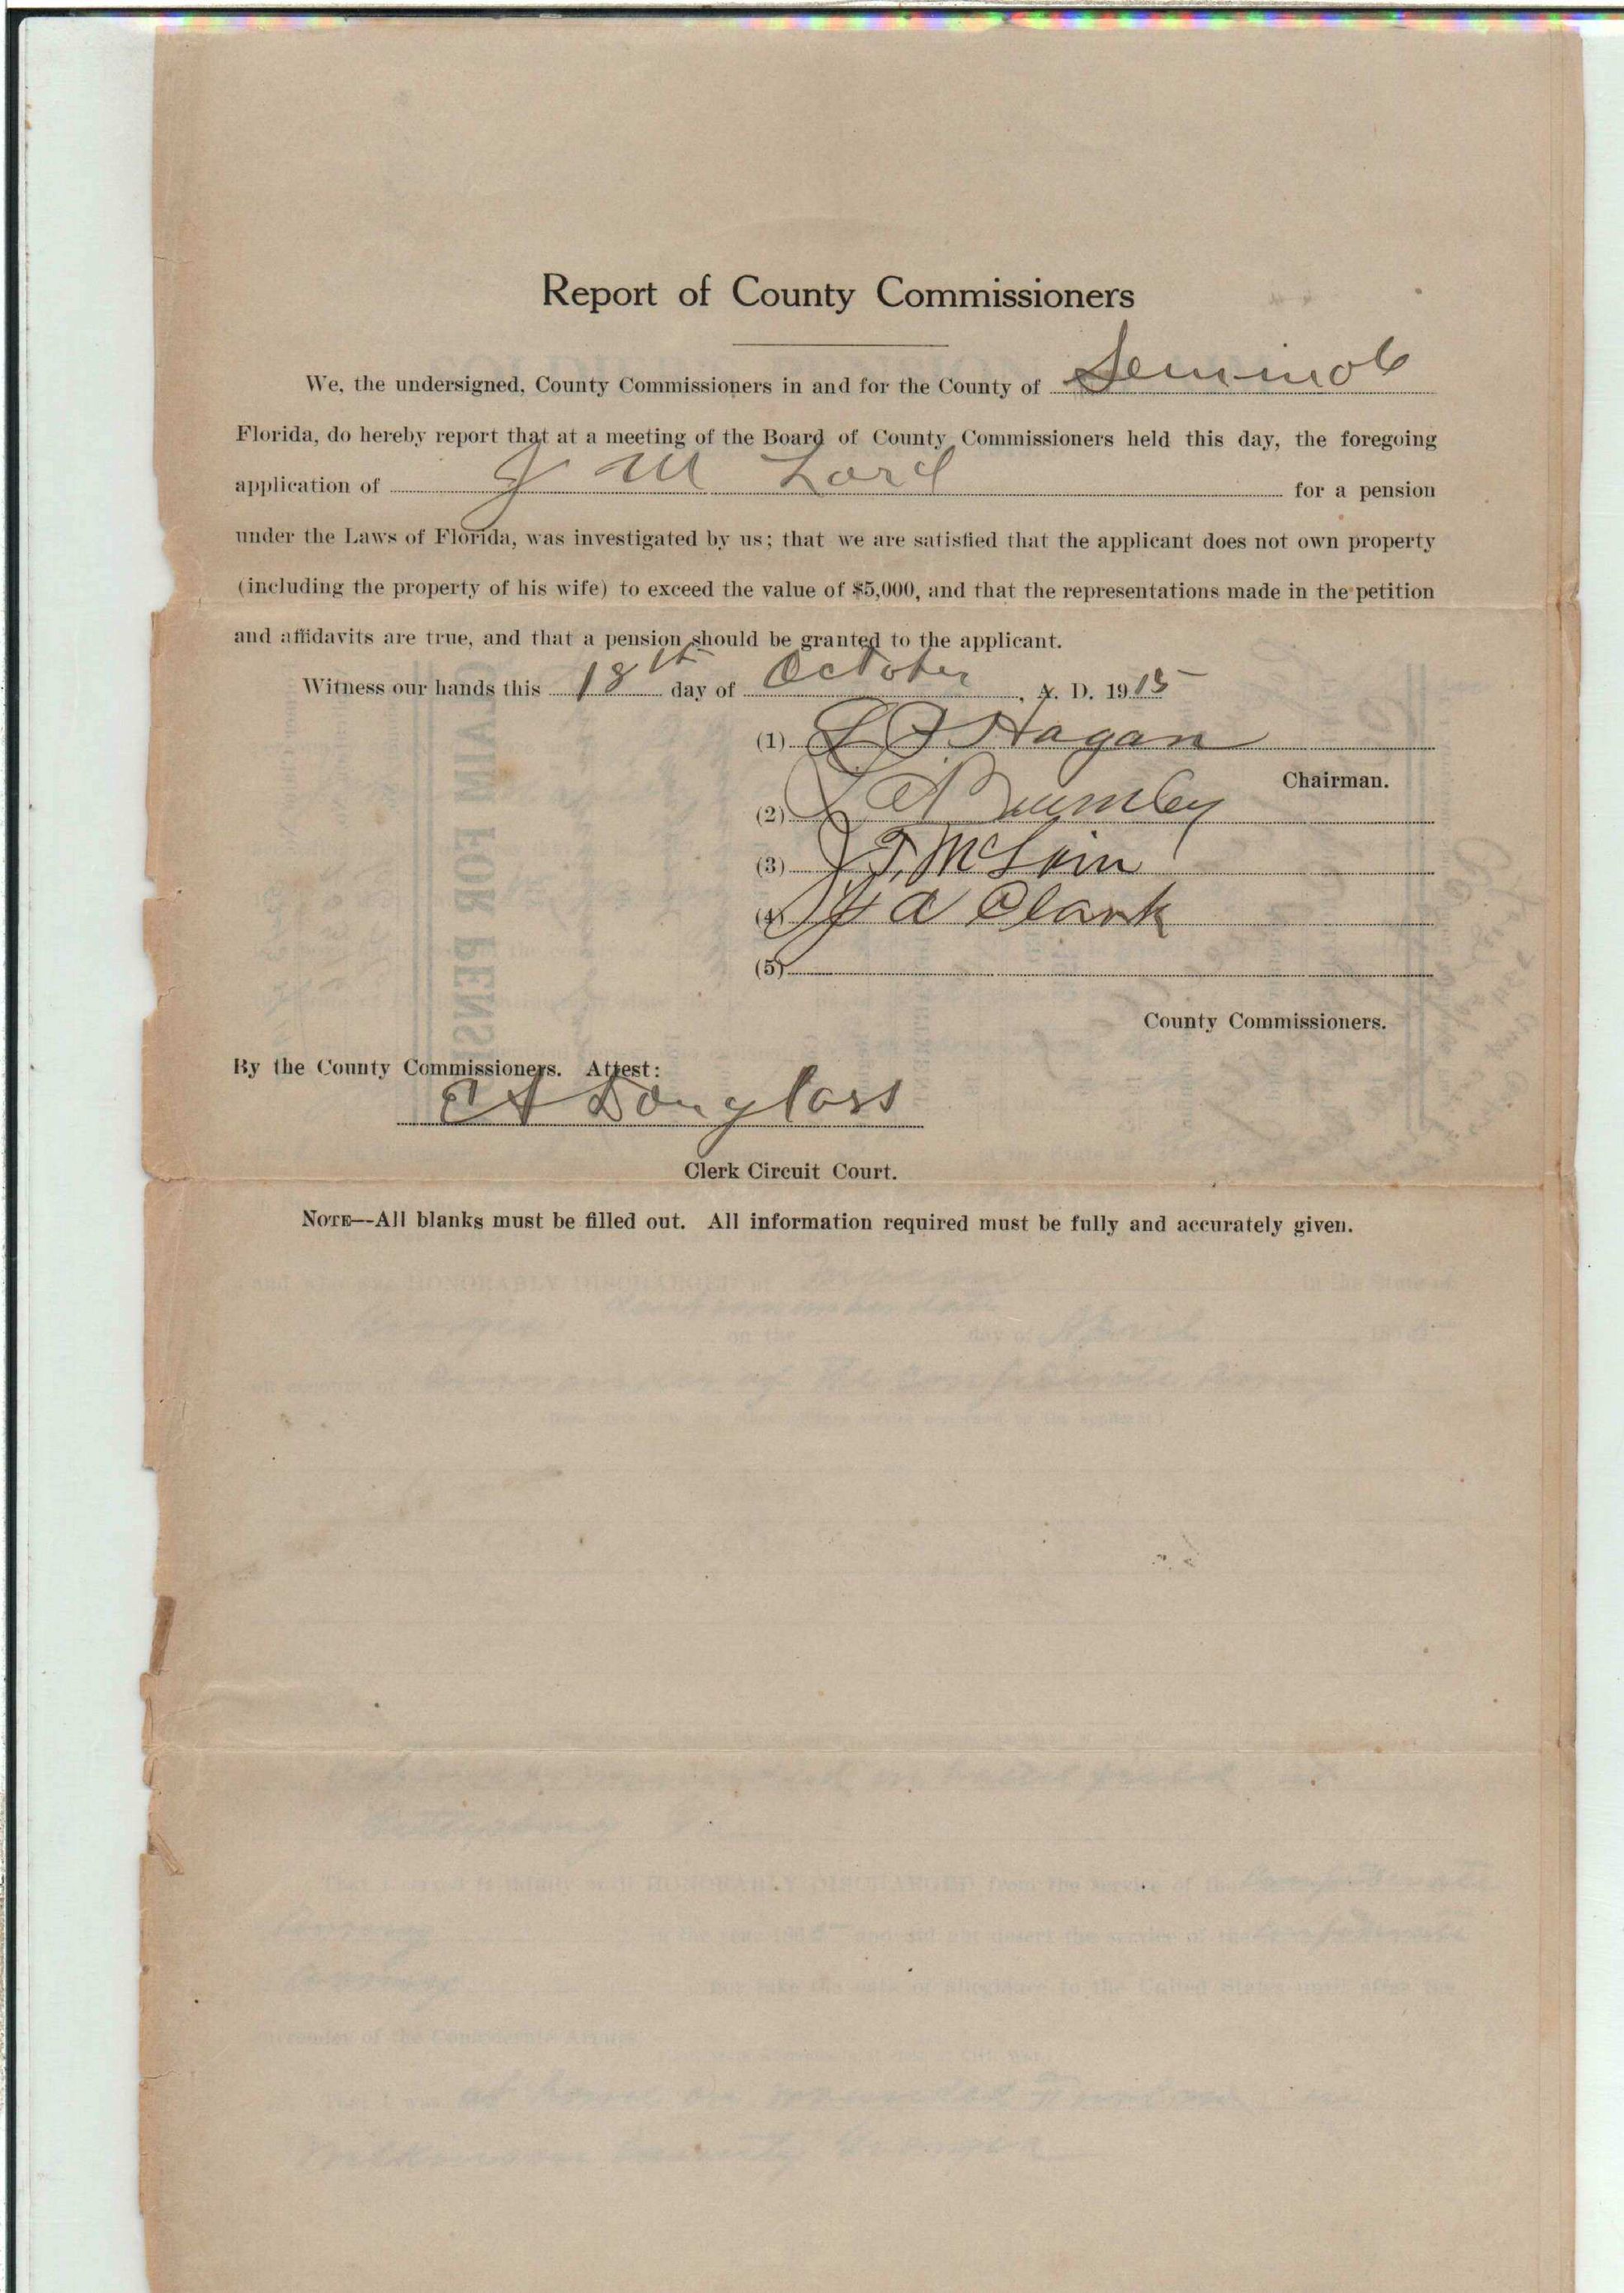 Report of County Commissioners
We, the undersigned, County Commissioners in and for the County of Seminole
Florida, do hereby report that at a meeting of the Board of County Commissioners held this day, the foregoing
application of J M Lord for a pension
under the Laws of Florida, was investigated by us; that we are satisfied that the applicant does not own property
(including the property of his wife) to exceed the value of $5,000, and that the representations made in the petition
and affidavits are true, and that a pension should be granted to the applicant.
Witness our hands this 18th day of October, A. D. 1915
(1) L F Hagan
Chairman.
(2) Brumley
(3) J. T. McLain
(4) A Clark
(5)
County Commissioners.
By the County Commissioners. Attest:
E A Douglass
Clerk Circuit Court.
NOTE--All blanks must be filled out. All information required must be fully and accurately given.